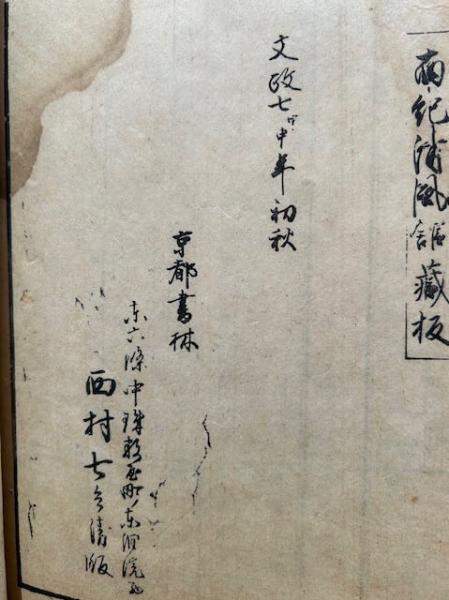 南紀清風舘藏板
文政七甲申年初秋
京都書林
東六條中珠数屋町東洞院
西村七兵衛版